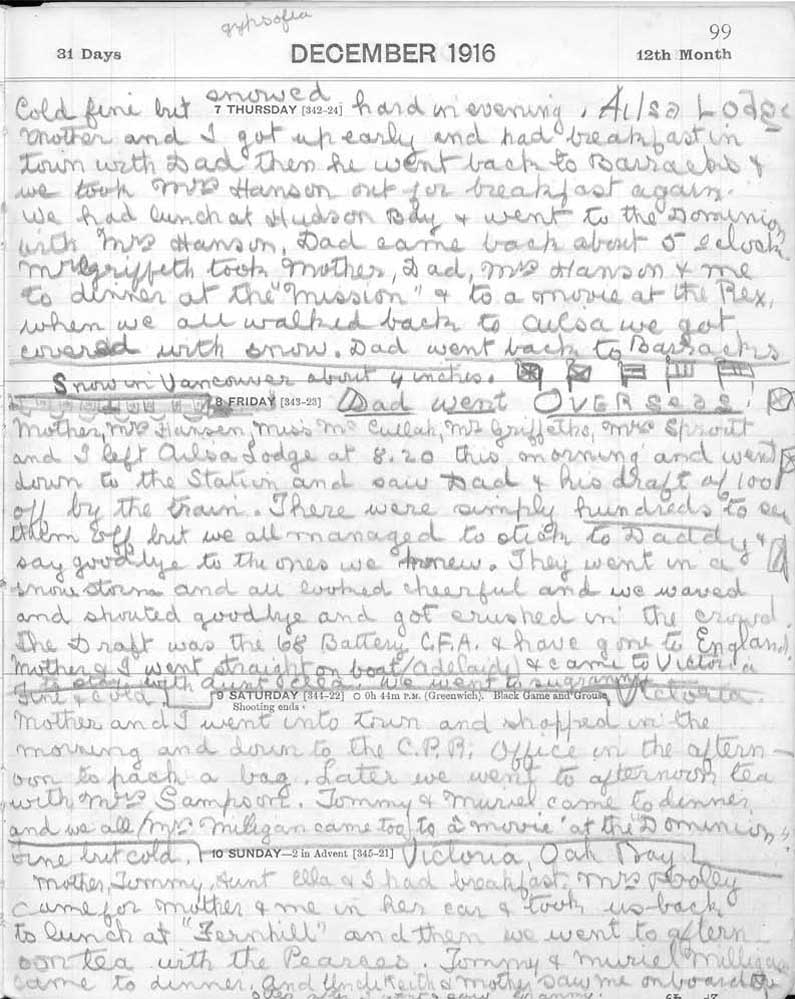 gypsofia
99
31 Days DECEMBER 1916 12th Month
Cold fine but snowed 7 THURSDAY [342-24] hard in evening. Ailsa Lodge
Mother and I got up early and had breakfast in
town with Dad then he went back to Barracks &
we took Mrs Hanson out for breakfast again.
We had lunch at Hudson Bay & went to the Dominion
with Mrs Hanson, Dad came back about 5 oclock
Mr Griffeth took Mother, Dad, Mrs Hanson & me
to dinner at the "Mission" & to a movie at the Rex,
when we all walked back to Ailsa we got
covered with snow. Dad went back to Barracks
Snow in Vancouver about 4 inches.
8 FRIDAY [343-23] Dad went OVERSEAS
Mother, Mrs Hansen, Miss Mc Cullah, Mr Griffeths, Mrs Sproutt
and I left Ailsa Lodge at 8.20 this morning and went
down to the Station and saw Dad & his draft of 100
off by the train. There were simply hundreds to see
them off but we all managed to stick to Daddy &
say goodbye to the ones we knew. They went in a
snow storm and all looked cheerful and we waved
and shouted goodbye and got crushed in the crowd.
The Draft was the 68 Battery C.F.A. & have gone to England.
Mother & I went straight on boat (Adelaide) & came to Victoria
to stay with Aunt Ella. We went to
Fine & cold 9 SATURDAY [344-22] ○ 0h 44m P.M. (Greenwich). Black Game and Grouse Victoria.
Shooting ends
Mother and I went into town and shopped in the
morning and down to the C.P.R. Office in the aftern-
oon to pack a bag. Later we went to afternoon tea
with Mrs Sampson. Tommy & Muriel came to dinner
and we all (Mrs Milligan came too) to a movie at the "Dominion"
Fine but cold. 10 SUNDAY—2 in Advent [345-21] Victoria, Oak Bay
Mother, Tommy, Aunt Ella & I had breakfast. Mrs Pooley
came for mother & me in her car & took us back
to lunch at "Fernhill" and then we went to aftern-
oon tea with the Pearces. Tommy & Muriel Milligan
came to dinner. And Uncle Keith & mother saw me onboard